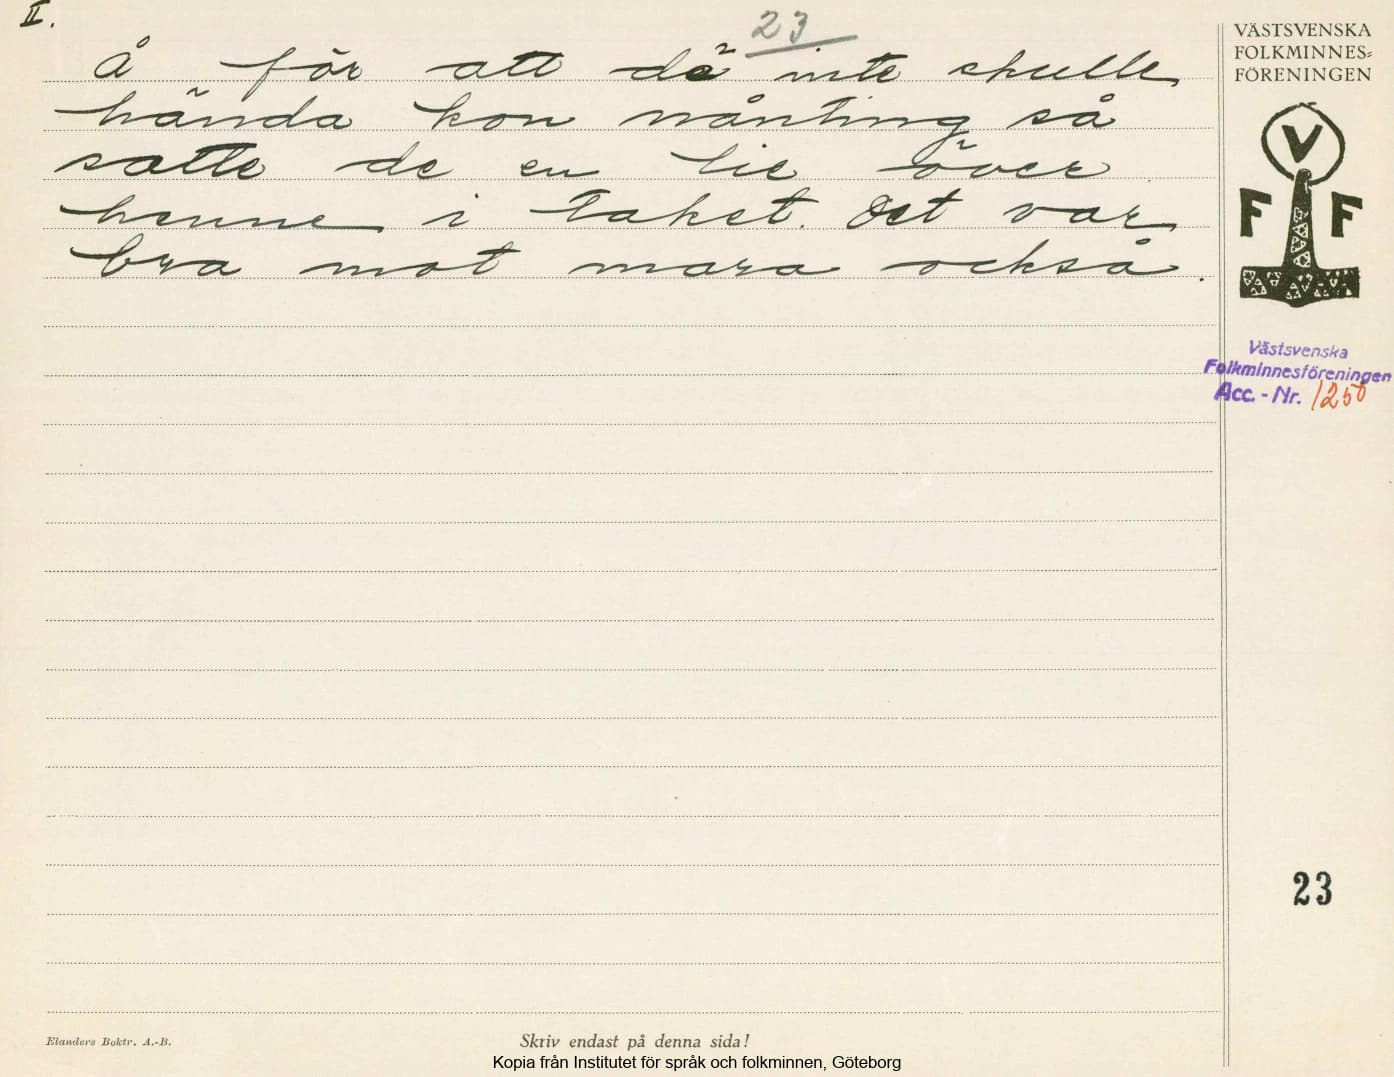 II.
23
Å för att dä inte skulle
hända kon nånting så
satte de en lie över
henne i taket. Det var
bra mot mara också.
VÄSTSVENSKA
FOLKMINNES=
FÖRENINGEN
V
F F
Västsvenska
Folkminnesföreningen
Acc. - Nr. 1250
23
Elanders Boktr. A.-B.
Skriv endast på denna sida!
Kopia från Institutet för språk och folkminnen, Göteborg